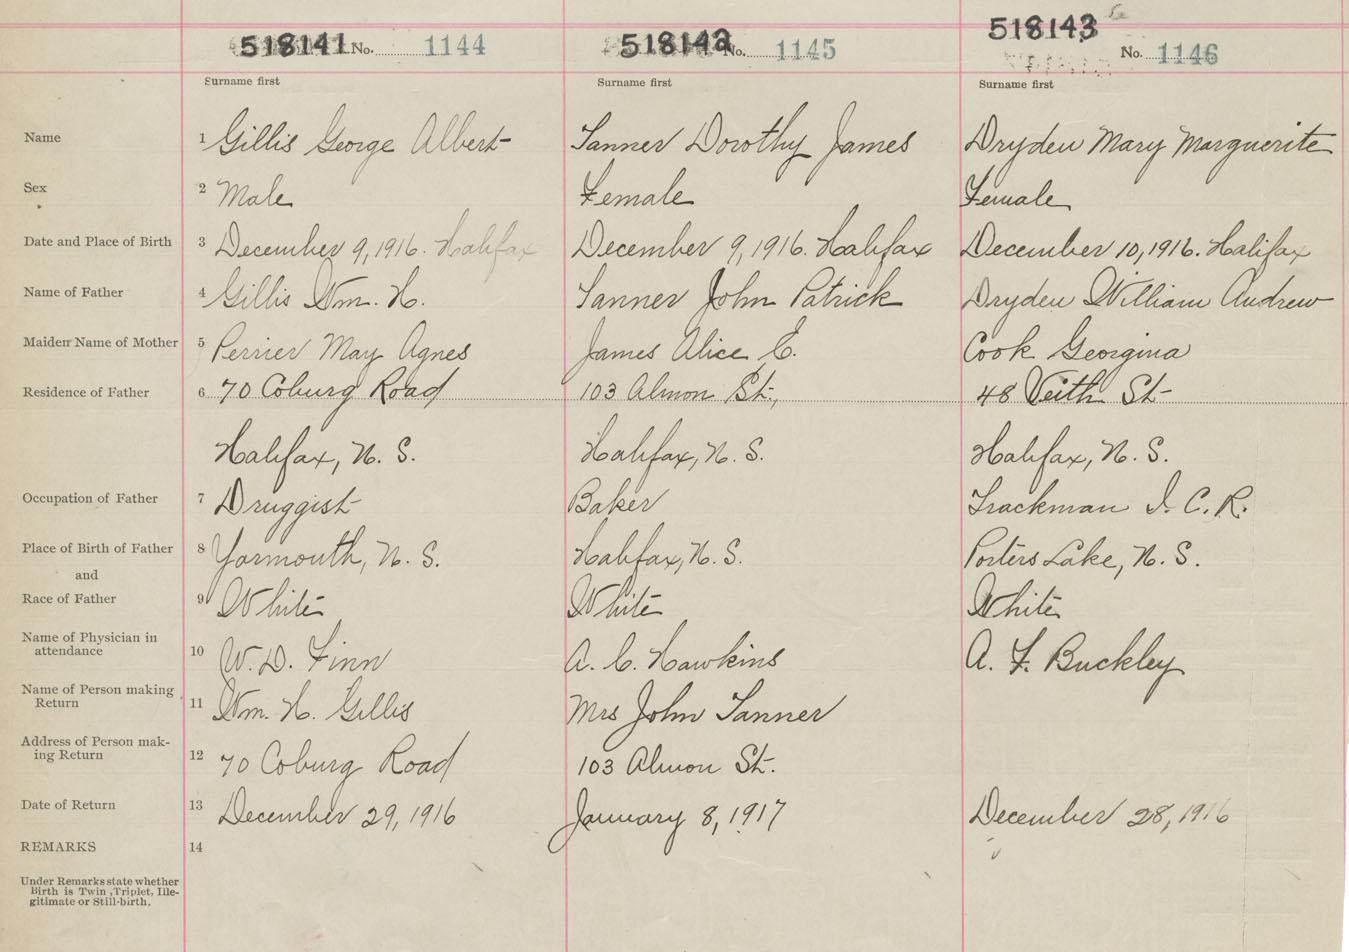 518141 No. 1144 518142 No. 1145 518143 No. 1146
Surname first Surname first Surname first
Name 1 Gillis George Albert Tanner Dorothy James Dryden Mary Marguerite
Sex 2 Male Female Female
Date and Place of Birth 3 December 9, 1916. Halifax December 9, 1916. Halifax December 10, 1916. Halifax
Name of Father 4 Gillis Wm. H. Tanner John Patrick Dryden William Andrew
Maiden Name of Mother 5 Perrier May Agnes James Alice E. Cook Georgina
Residence of Father 6 70 Coburg Road 103 Almon St., 48 Veith St
Halifax, N. S. Halifax, N. S. Halifax, N. S.
Occupation of Father 7 Druggist Baker Trackman I. C. R.
Place of Birth of Father 8 Yarmouth, N. S. Halifax, N. S. Porters Lake, N. S.
and
Race of Father 9 White White White
Name of Physician in
attendance 10 W. D. Finn A. C. Hawkins A. F. Buckley
Name of Person making
Return 11 Wm. H. Gillis Mrs John Tanner
Address of Person mak-
ing Return 12 70 Coburg Road 103 Almon St.
Date of Return 13 December 29, 1916 January 8, 1917 December 28, 1916
REMARKS 14
Under Remarks state whether
Birth is Twin, Triplet, Ille-
gitimate or Still-birth.